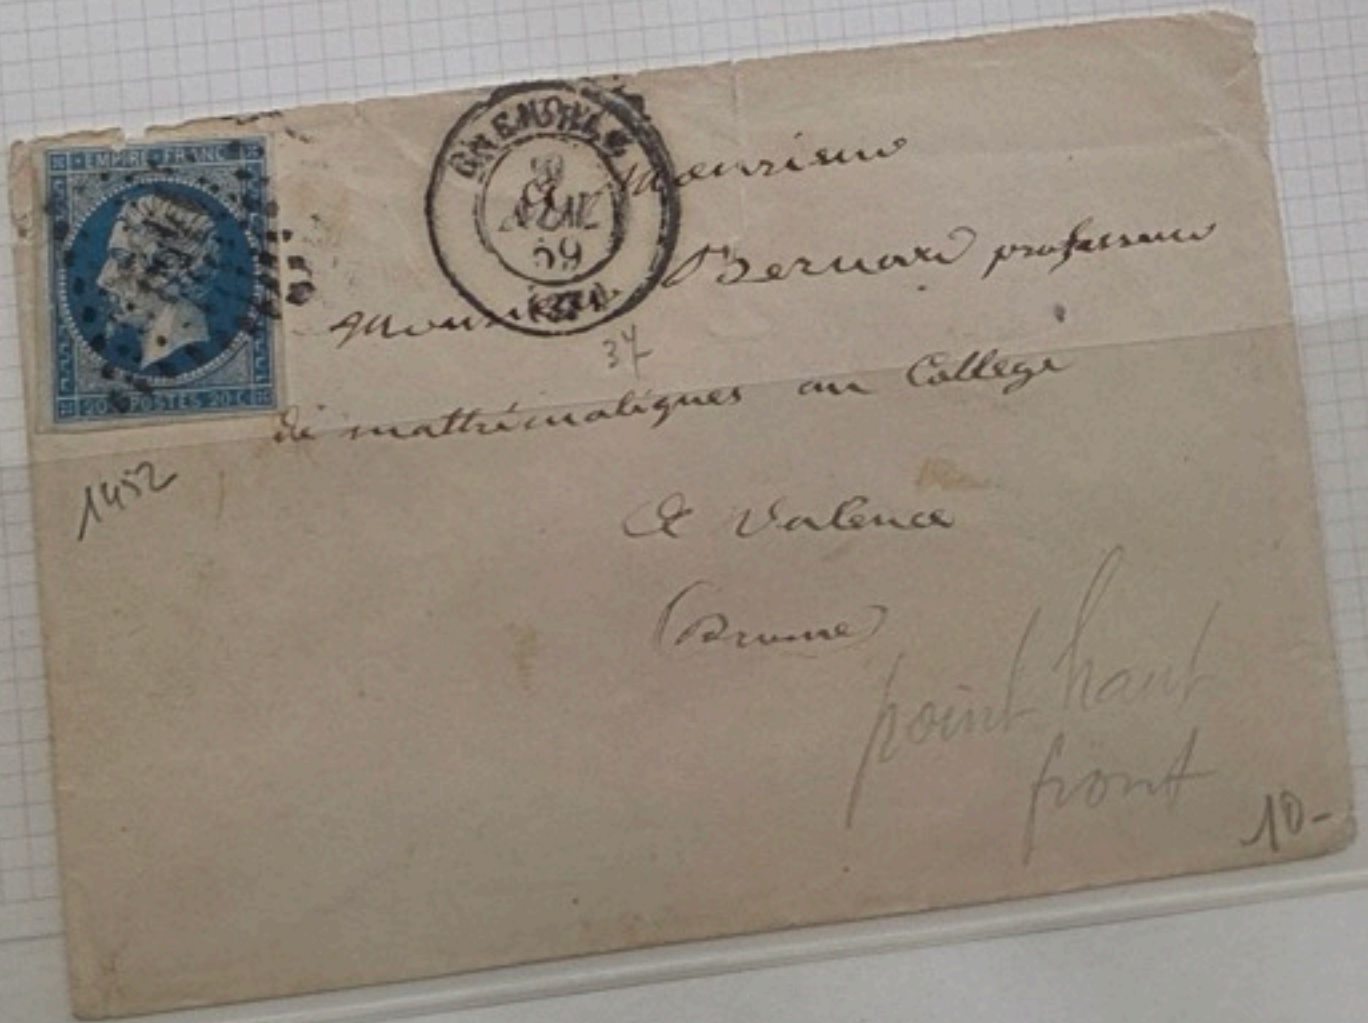 EMPIRE FRANC
20 C POSTES 20 C
GRENOBLE
59
(37)
Monsieur
Monsieur Bernard professeur
37
de mathématiques au College
1452
A Valence
(Drome)
point haut
front
10-